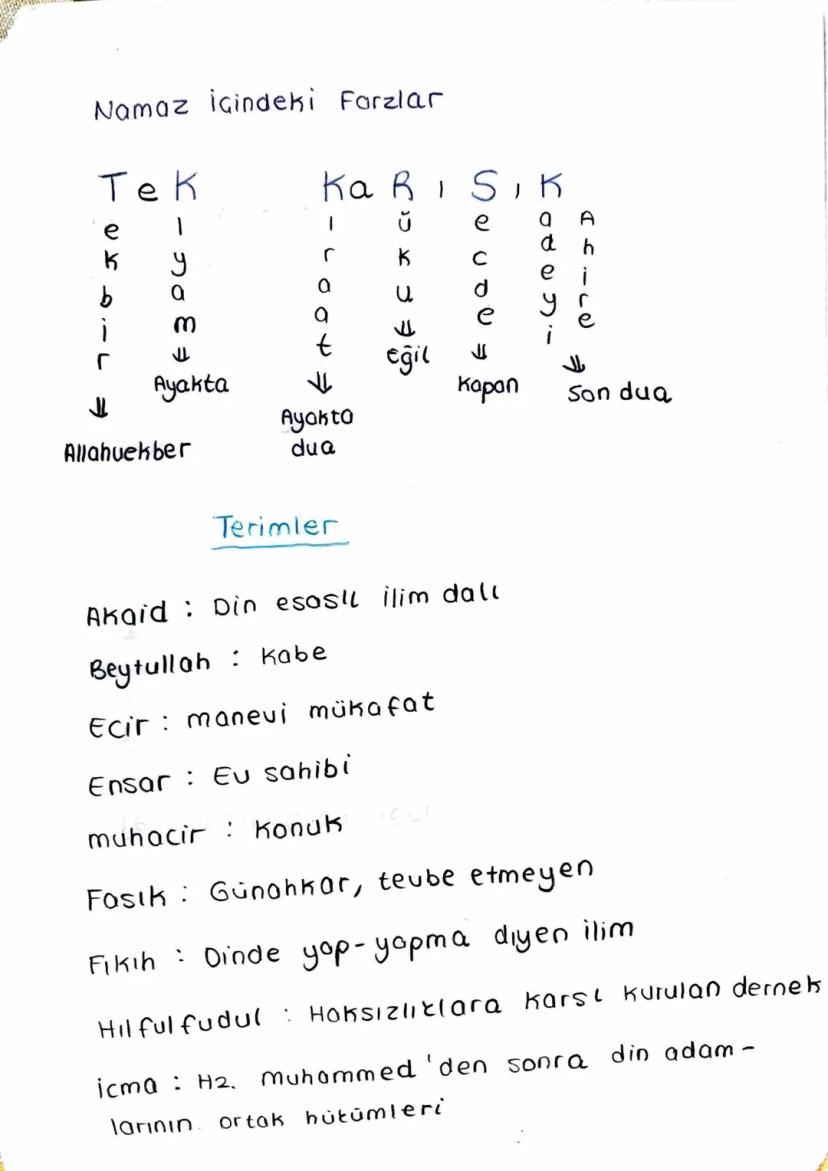 Namaz İçindeki Farzlar
TeK KaRıSıK
Tekbir
Kıyam
Kıraat
Rüku
Secde
Kadeyi
Ahire
Ayakta
Eğil
Kapan
Son dua
Allahuekber
Ayakta
dua
Terimler
Akaid : Din esaslı ilim dalı
Beytullah : Kabe
Ecir : manevi mükafat
Ensar : Ev sahibi
muhacir : Konuk
Fasık : Günahkar, tevbe etmeyen
Fıkıh : Dinde yap-yapma dıyen ilim
Hılful fudul : Haksızlıklara karsı kurulan dernek
icma : Hz. Muhammed'den sonra din adam-
larının ortak hükümleri